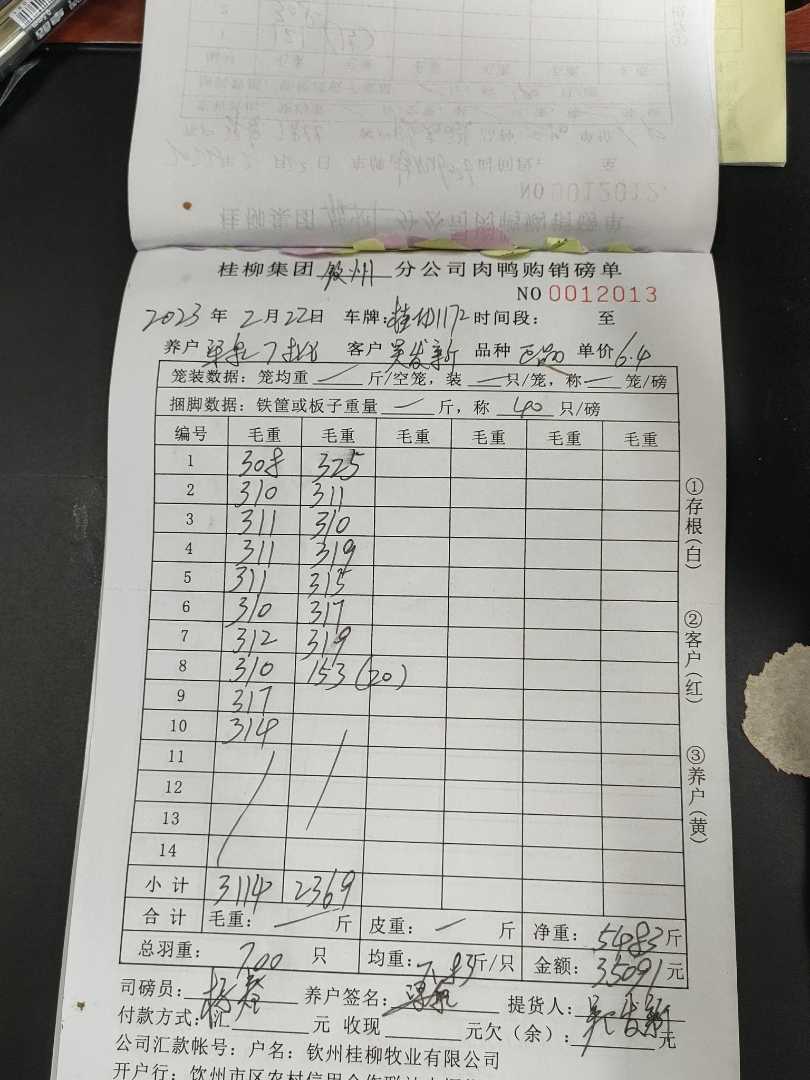 NO 0012012
桂柳集团 钦州 分公司肉鸭购销磅单
NO 0012013
2023 年 2 月 22 日 车牌: 1172 时间段: 至
养户 客户 吴发新 品种 单价 6.4
笼装数据: 笼均重 — 斤/空笼, 装 — 只/笼, 称 — 笼/磅
捆脚数据: 铁筐或板子重量 — 斤, 称 40 只/磅
编号 毛重 毛重 毛重 毛重 毛重 毛重
1 308 325
2 310 311
3 311 310
4 311 319
5 311 315
6 310 317
7 312 319
8 310 153 (20)
9 317
10 314
11
12
13
14
小计 3114 2369
合计 毛重: — 斤 皮重: — 斤 净重: 5483 斤
总羽重: 700 只 均重: 斤/只 金额: 35091 元
司磅员: 养户签名: 提货人: 吴发新
付款方式: 汇 元 收现 元欠(余): 元
公司汇款帐号: 户名: 钦州桂柳牧业有限公司
开户行: 钦州市区农村信用合作联社
①存根(白)
②客户(红)
③养户(黄)